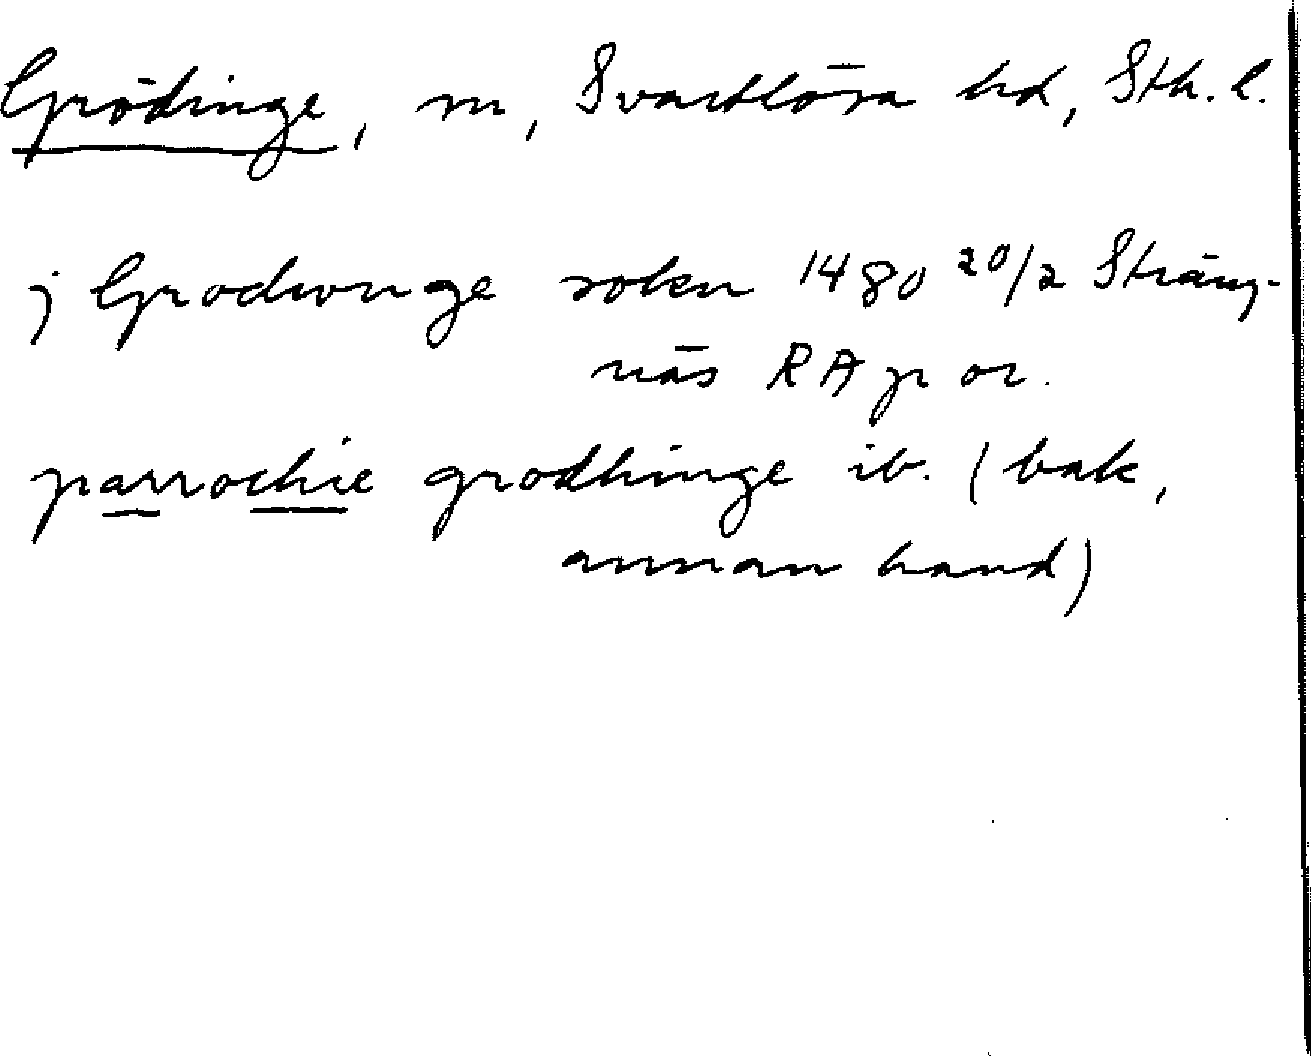 Grödinge, sn, Svartlösa hd, Sth. l.
j Grodwnge sokn 1480 20/2 Sträng-
näs RA p or.
parrochie grodhinge ib. (bak,
annan hand)